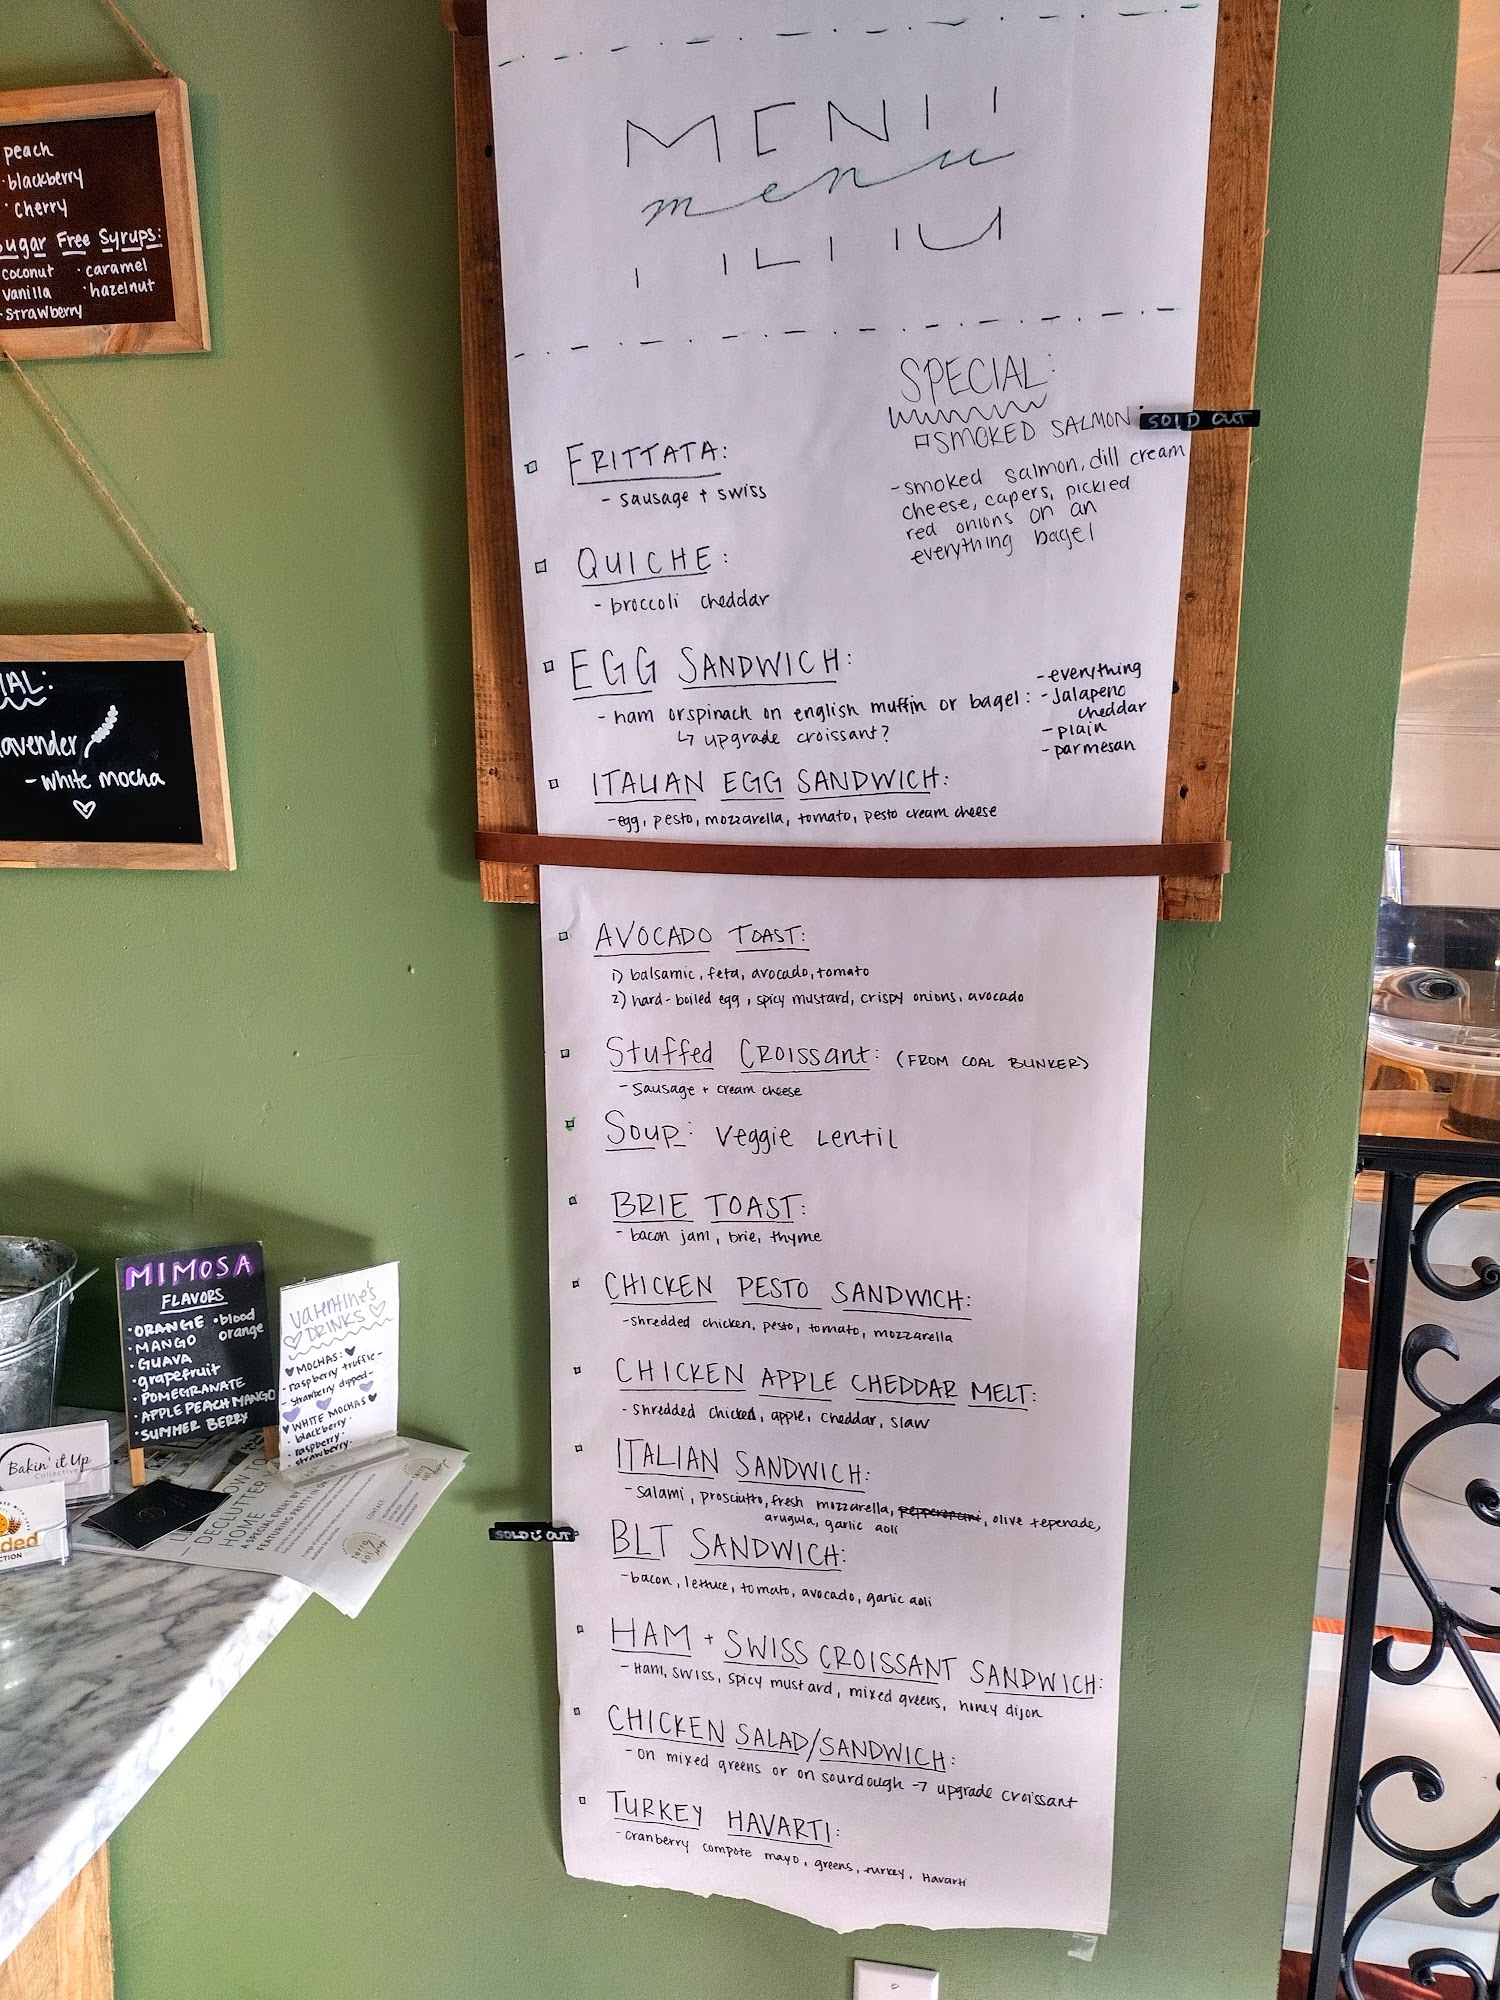 peach
· blackberry
· cherry
Sugar Free Syrups:
coconut · caramel
vanilla · hazelnut
- strawberry
lavender
- white mocha
MENU
menu
SPECIAL:
SMOKED SALMON: SOLD OUT
- smoked salmon, dill cream
cheese, capers, pickled
red onions on an
everything bagel
FRITTATA:
- sausage + swiss
QUICHE:
- broccoli cheddar
EGG SANDWICH:
- ham or spinach on english muffin or bagel:
↳ upgrade croissant?
- everything
- Jalapeno
cheddar
- plain
- parmesan
ITALIAN EGG SANDWICH:
- egg, pesto, mozzarella, tomato, pesto cream cheese
AVOCADO TOAST:
1) balsamic, feta, avocado, tomato
2) hard-boiled egg, spicy mustard, crispy onions, avocado
Stuffed Croissant: (FROM COAL BUNKER)
- Sausage + cream cheese
Soup: Veggie Lentil
BRIE TOAST:
- bacon jam, brie, thyme
CHICKEN PESTO SANDWICH:
- shredded chicken, pesto, tomato, mozzarella
CHICKEN APPLE CHEDDAR MELT:
- shredded chicked, apple, cheddar, slaw
ITALIAN SANDWICH:
- Salami, prosciutto, fresh mozzarella, olive tepenade,
arugula, garlic aoli
SOLD OUT
BLT SANDWICH:
- bacon, lettuce, tomato, avocado, garlic aoli
HAM + SWISS CROISSANT SANDWICH:
- Ham, swiss, spicy mustard, mixed greens, honey dijon
CHICKEN SALAD/SANDWICH:
- on mixed greens or on sourdough → upgrade croissant
TURKEY HAVARTI:
- cranberry compote mayo, greens, turkey, Havarti
MIMOSA
FLAVORS
· ORANGE · blood
orange
· MANGO
· GUAVA
· grapefruit
· POMEGRANATE
· APPLE PEACH MANGO
· SUMMER BERRY
Valentine's
DRINKS
♥ MOCHAS: ♥
- raspberry truffle -
- strawberry dipped -
♥ WHITE MOCHAS ♥
· blackberry ·
· raspberry ·
· strawberry ·
Bakin' it Up
Collective
DECLUTTER
HOME
A SPECIAL EVENT
FEATURING PRETTY